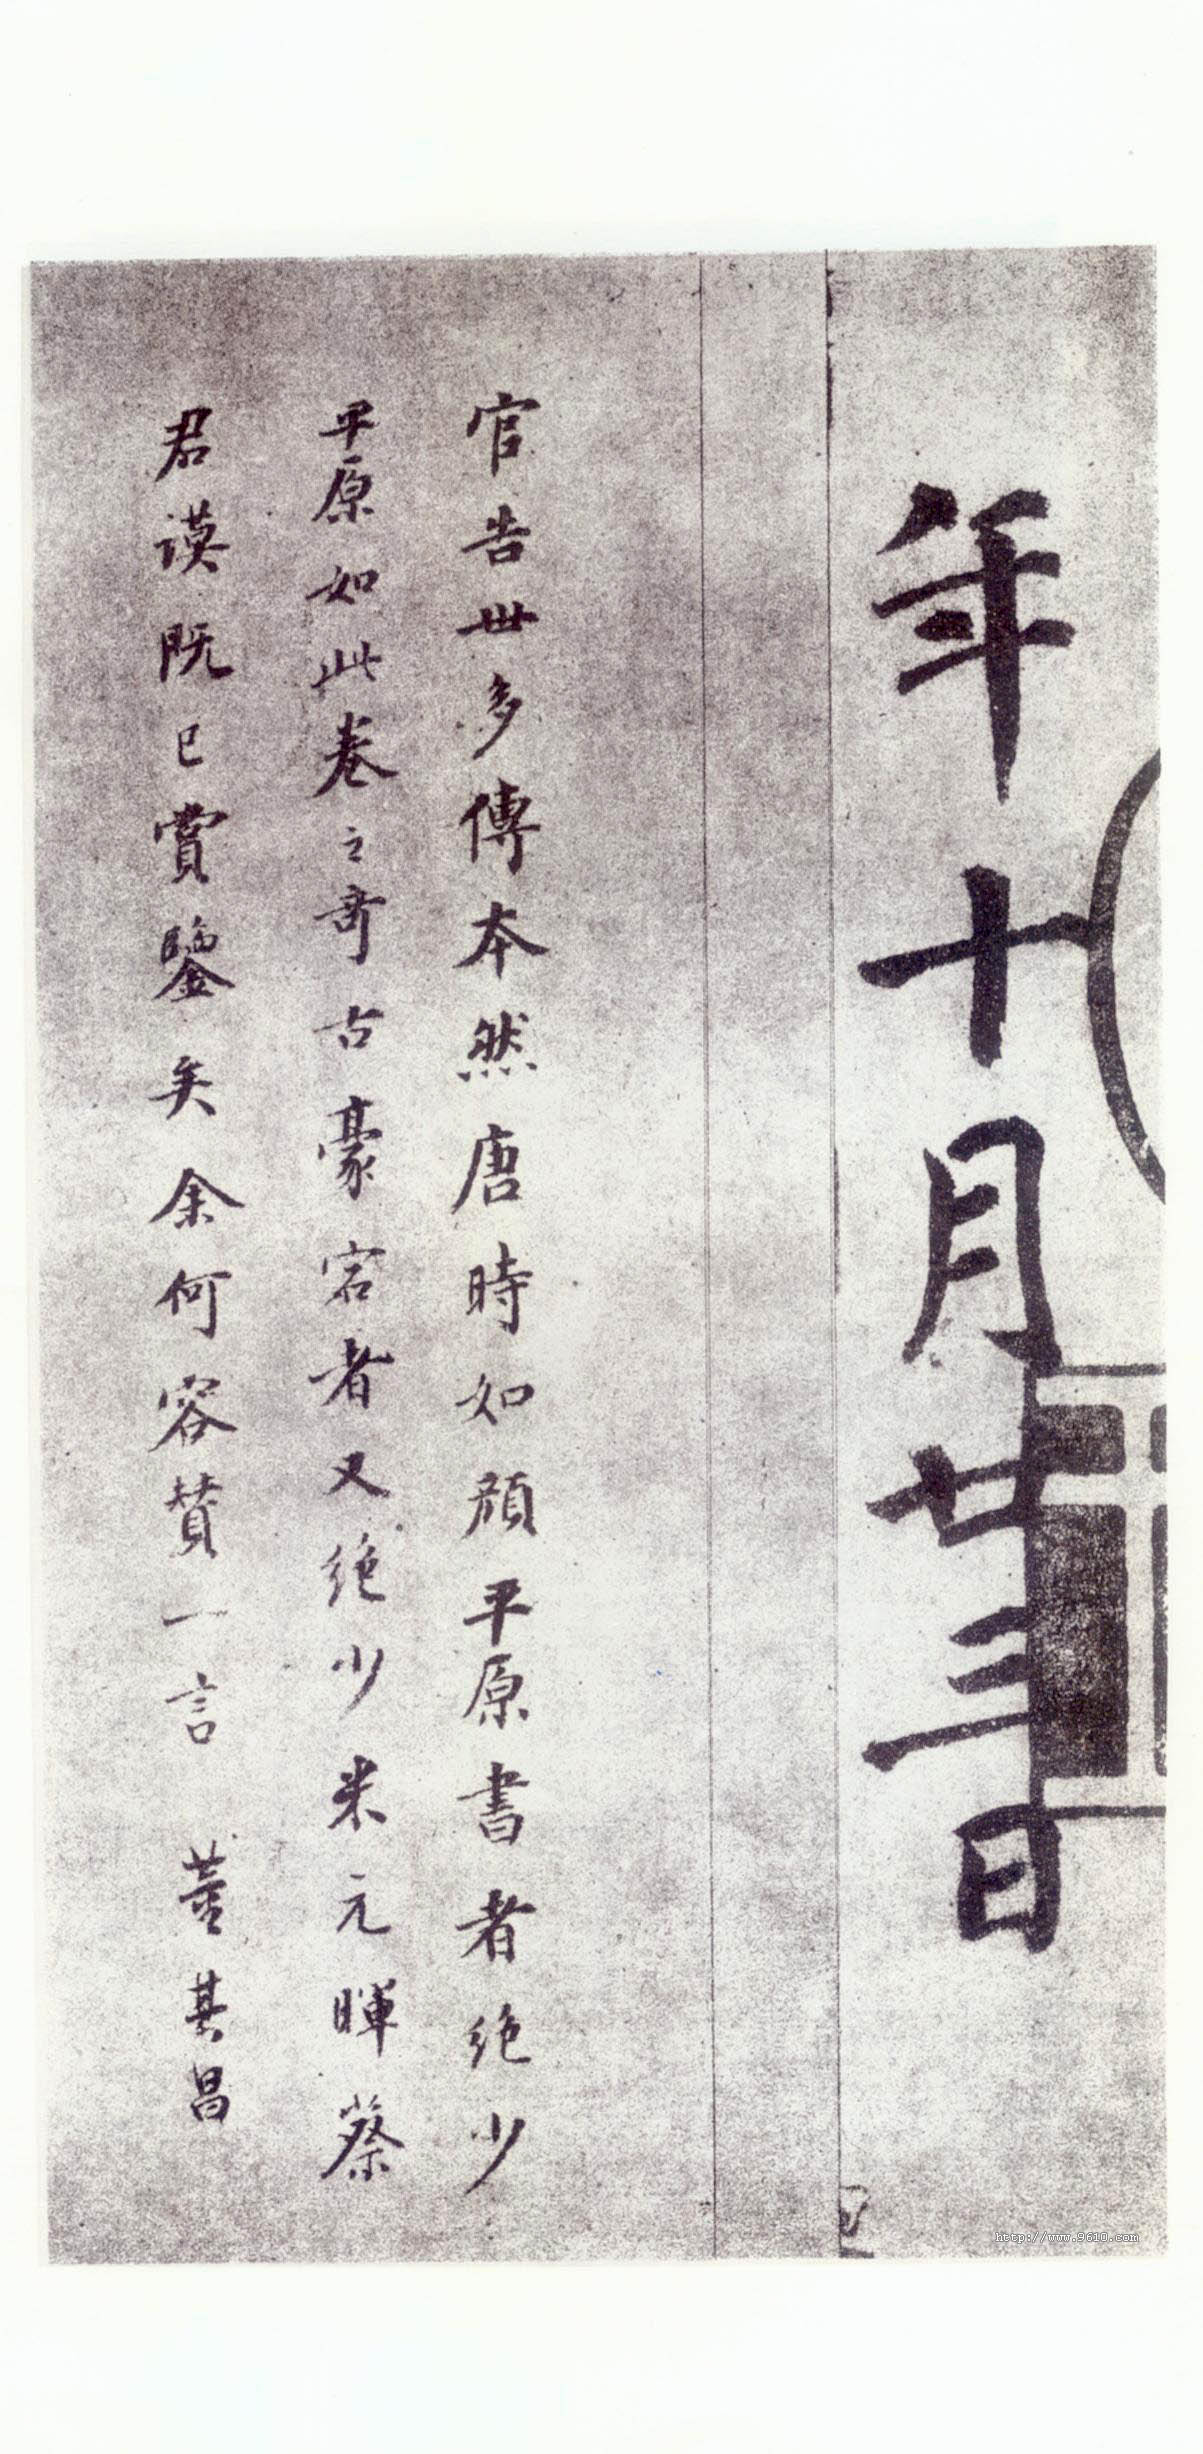 年十月廿三日
官告世多傳本然唐時如顏平原書者絶少
平原如此卷之奇古豪宕者又絶少米元暉蔡
君謨既已賞鑒矣余何容贊一言 董其昌
http://www.9610.com